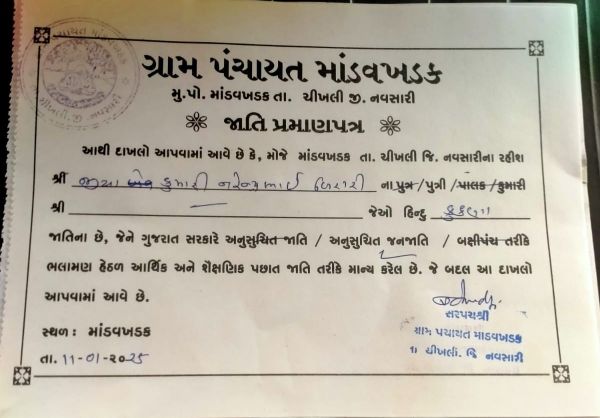 ગ્રામ પંચાયત માંડવખડક
ગ્રામ પંચાયત માંડવખડક
મુ.પો. માંડવખડક તા. ચીખલી જી. નવસારી
જાતિ પ્રમાણપત્ર
આથી દાખલો આપવામાં આવે છે કે, મોજે માંડવખડક તા. ચીખલી જિ. નવસારીના રહીશ
શ્રી કુમારી નરેન્દ્રભાઈ ના પુત્ર / પુત્રી / પાલક / કુમારી
શ્રી જેઓ હિન્દુ કુકણા
જાતિના છે, જેને ગુજરાત સરકારે અનુસુચિત જાતિ / અનુસુચિત જનજાતિ / બક્ષીપંચ તરીકે
ભલામણ હેઠળ આર્થિક અને શૈક્ષણિક પછાત જાતિ તરીકે માન્ય કરેલ છે. જે બદલ આ દાખલો
આપવામાં આવે છે.
સરપંચશ્રી
સ્થળ : માંડવખડક
ગ્રામ પંચાયત માંડવખડક
તા. 11-01-૨૦25
તા ચીખલી. જિ નવસારી